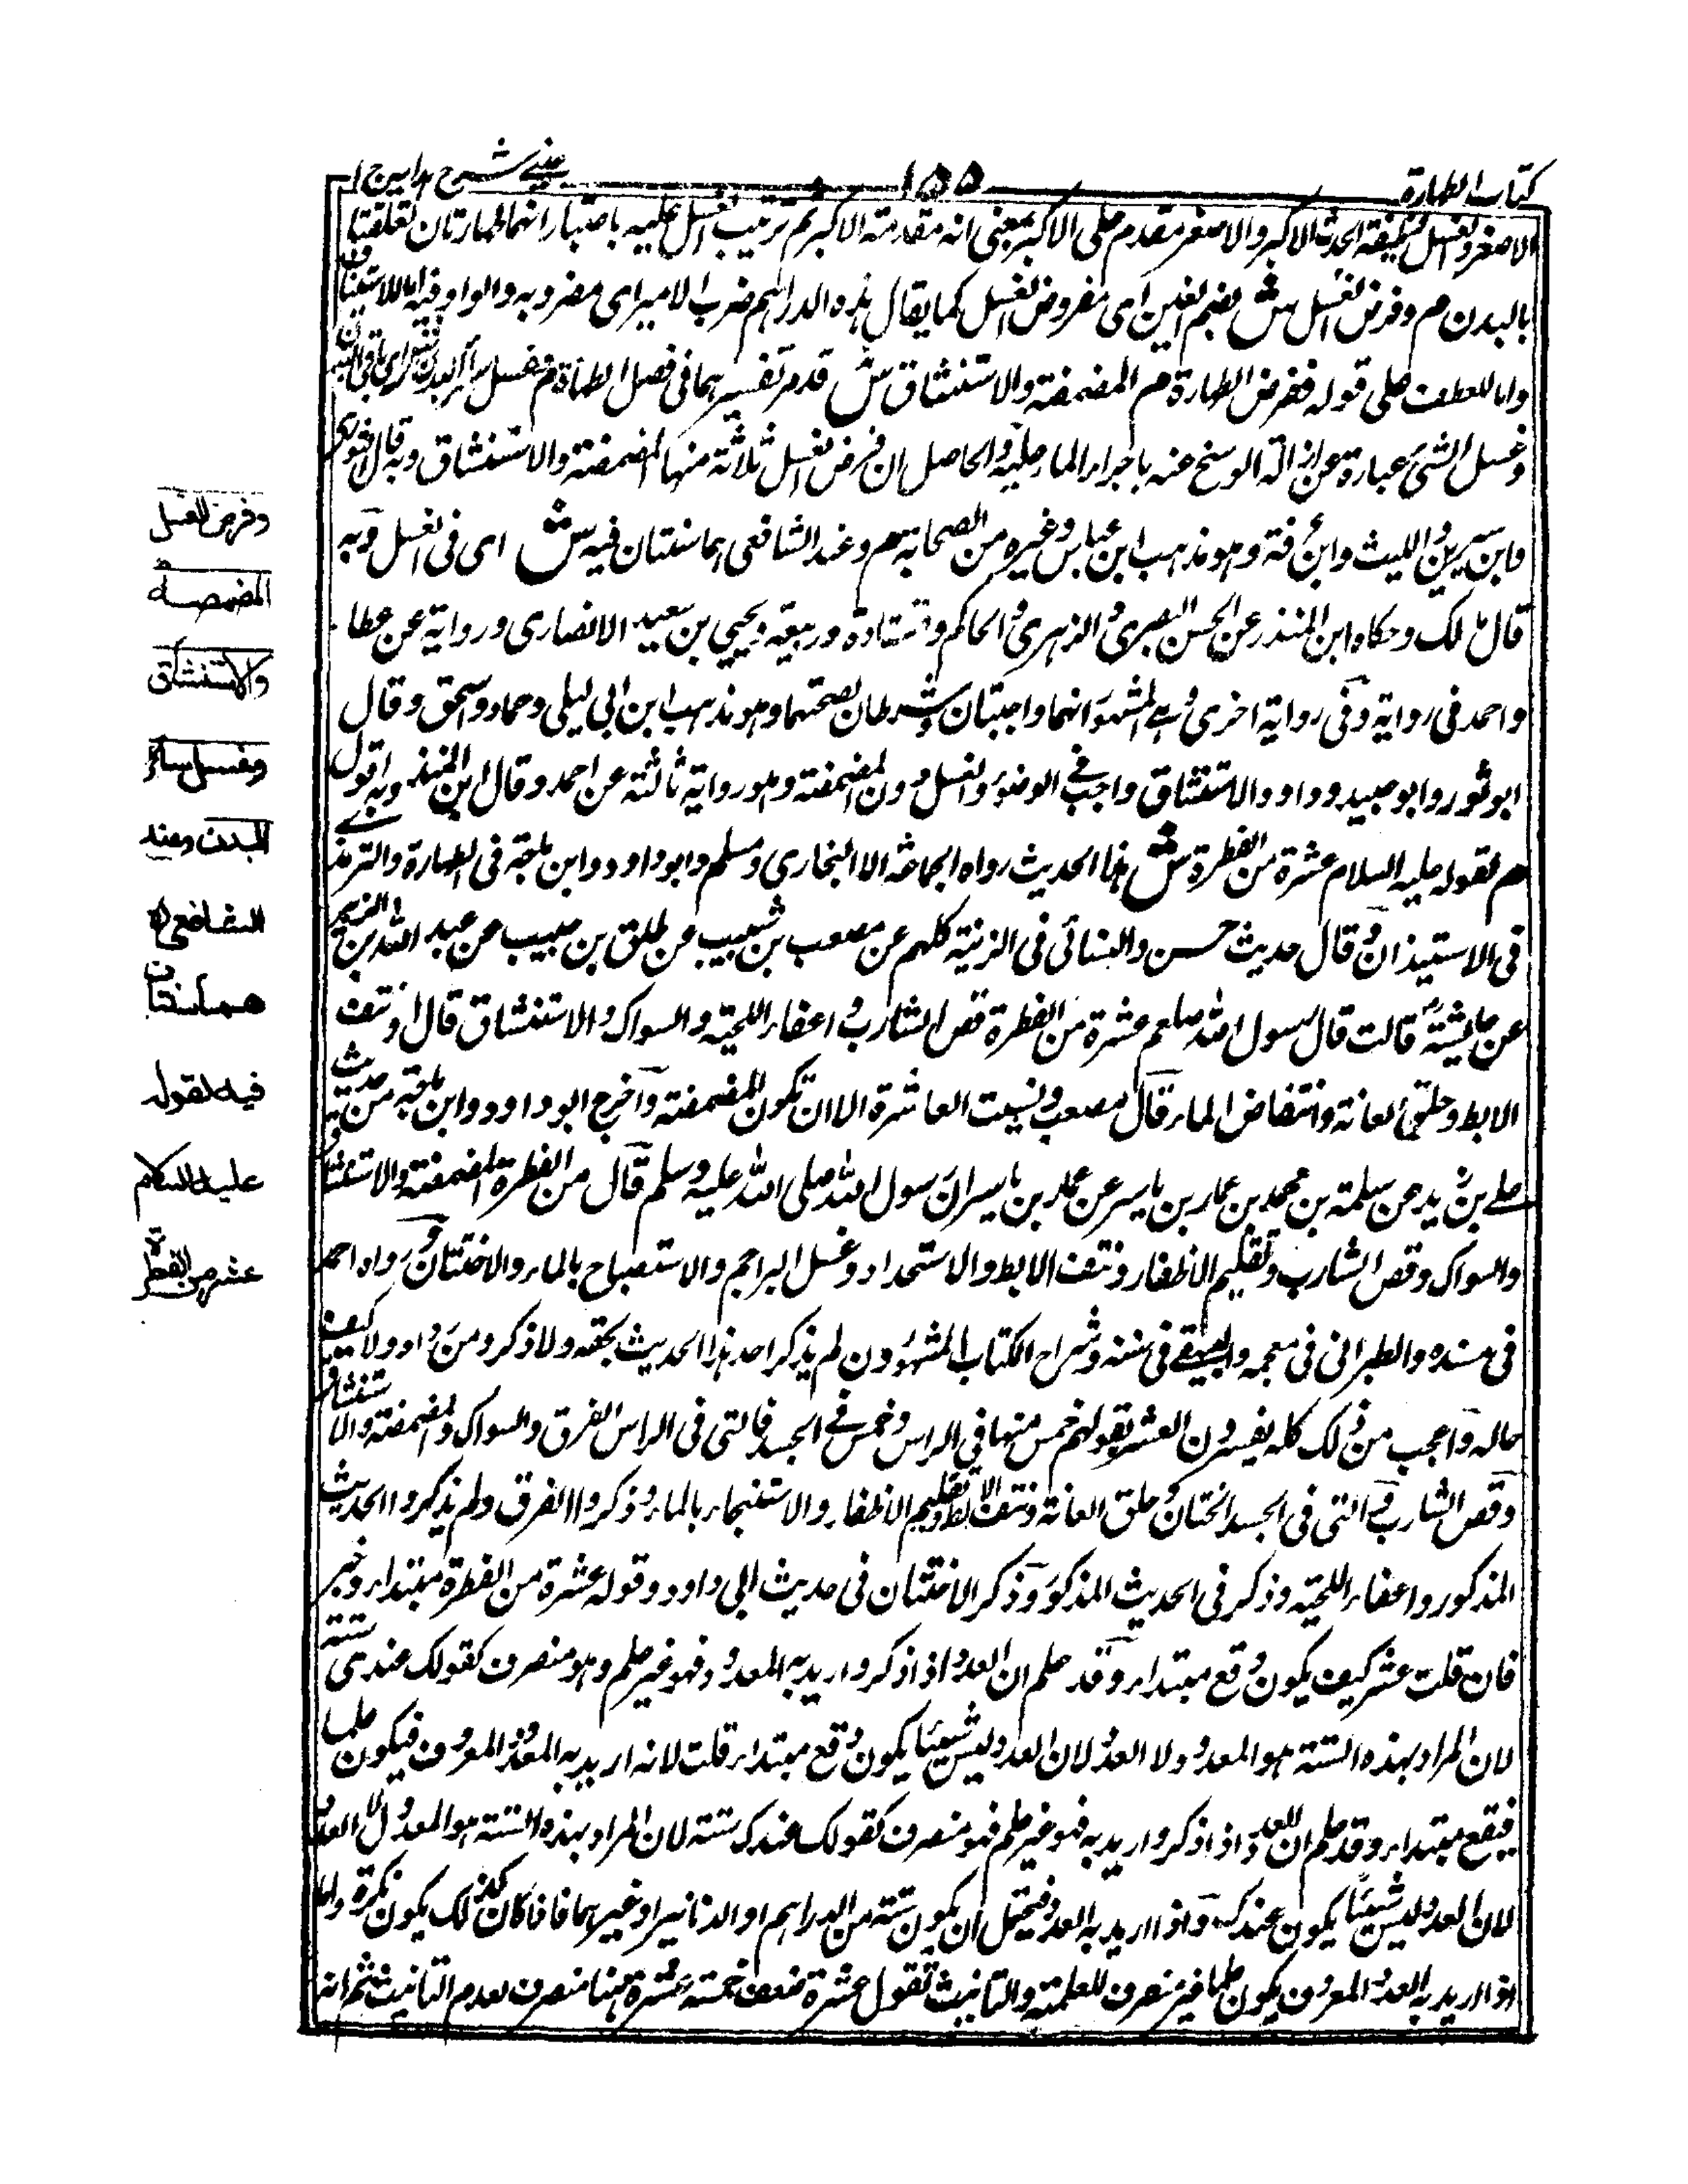 كتاب الطهارة
١٥٥
عيني شرح هدايه ج ا
الاصغر والغسل وظيفة الحدث الاكبر والاصغر مقدم على الاكبر بمعنى انه مقدمة الاكبر ثم ترتيب الغسل عليه باعتبار انهما طهارتان تعلقتا
بالبدن م وفرض الغسل ش بضم الغين اى مفروض الغسل كما يقال هذه الدراهم ضرب الامير اى مضروبه والواو فيه اما للاستيناف
واما للعطف على قوله ففرض الطهارة م المضمضة والاستنشاق ش قد مر تفسيرهما فى فصل الطهارة م وغسل سائر البدن ش اى باقى البدن
وغسل الشئ عبارة عن ازالة الوسخ عنه باجراء الماء عليه والحاصل ان فرض الغسل ثلاثة منها المضمضة والاستنشاق وبه قال الثورى
وابن سيرين والليث وابن عرفة وهو مذهب ابن عباس وغيره من الصحابة م وعند الشافعى هما سنتان فيه ش اى فى الغسل وبه
قال مالك وحكاه ابن المنذر عن الحسن البصرى والزهرى والحاكم وقتادة وربيعة ويحيى بن سعيد الانصارى ورواية عن عطا
واحمد فى رواية وفى رواية اخرى وهى المشهور انهما واجبتان شرطان لصحتهما وهو مذهب ابن ابى ليلى وحماد واسحق وقال
ابو ثور وابو عبيد وداود والاستنشاق واجب فى الوضوء والغسل دون المضمضة وهو رواية ثالثة عن احمد وقال ابن المنذر وبه اقول
م لقوله عليه السلام عشرة من الفطرة ش هذا الحديث رواه الجماعة الا البخارى ومسلم وابو داود وابن ماجة فى الطهارة والترمذى
فى الاستيذان وقال حديث حسن والنسائى فى الزينة كلهم عن مصعب بن شيبة عن طلق بن حبيب عن عبد الله بن الزبير
عن عايشة قالت قال رسول الله صلعم عشرة من الفطرة قص الشارب واعفاء اللحية والسواك والاستنشاق قال او نتف
الابط وحلق العانة وانتقاض الماء قال مصعب ونسيت العاشرة الا ان تكون المضمضة واخرج ابو داود وابن ماجة من حديث
على بن زيد عن سلمة بن محمد بن عمار بن ياسر عن عمار بن ياسر ان رسول الله صلى الله عليه وسلم قال من الفطرة المضمضة والاستنشاق
والسواك وقص الشارب وتقليم الاظفار ونتف الابط والاستحداد وغسل البراجم والاستصباح بالماء والاختتان ورواه احمد
فى مسنده والطبرانى فى معجمه والبيهقى فى سننه وشراح الكتاب المشهورون لم يذكر احد هذا الحديث بحقه ولا ذكر ومن رواه ولا كيف
حاله واعجب من ذلك كله يفسرون العشر بقولهم خمس منها فى الراس وخمس فى الجسد فالتى فى الراس الفرق والسواك والمضمضة والاستنشاق
وقص الشارب والتى فى الجسد الختان وحلق العانة ونتف الابط وتقليم الاظفار والاستنجاء بالماء وذكروا الفرق ولم يذكروا الحديث
المذكور واعفاء اللحية وذكر فى الحديث المذكور وذكر الاختتان فى حديث ابى داود وقوله عشرة من الفطرة مبتداء وخبر
فان قلت عشر كيف يكون وقع مبتداء وقد علم ان العدد اذا ذكر واريد به المعدود فهو غير علم وهو منصرف كقولك عندى ستة
لان المراد بهذه الستة هو المعدود ولا العدد لان العدد ليس شيئا يكون وقع مبتداء قلت لانه اريد به العدد المعروف فيكون علما
فيقع مبتداء وقد علم ان العدد اذا ذكر واريد به فهو غير علم فهو منصرف كقولك عندك ستة لان المراد بهذه الستة هو المعدود لا العدد
لان العدد ليس شيئا يكون عندك واذا اريد به العدد فيحتمل ان يكون ستة من الدراهم او الدنانير او غيرهما فاذا كان كذلك يكون نكرة واما
اذا اريد به العدد المعروف يكون علما غير منصرف للعلمية والتانيث تقول عشرة ضعف خمسة عشرة هنا منصرف لعدم التانيث ثم انه
وفرض الغسل
المضمضة
والاستنشاق
وغسل سائر
البدن وعند
الشافعى ره
هما سنتان
فيه لقوله
عليه السلام
عشر من الفطرة